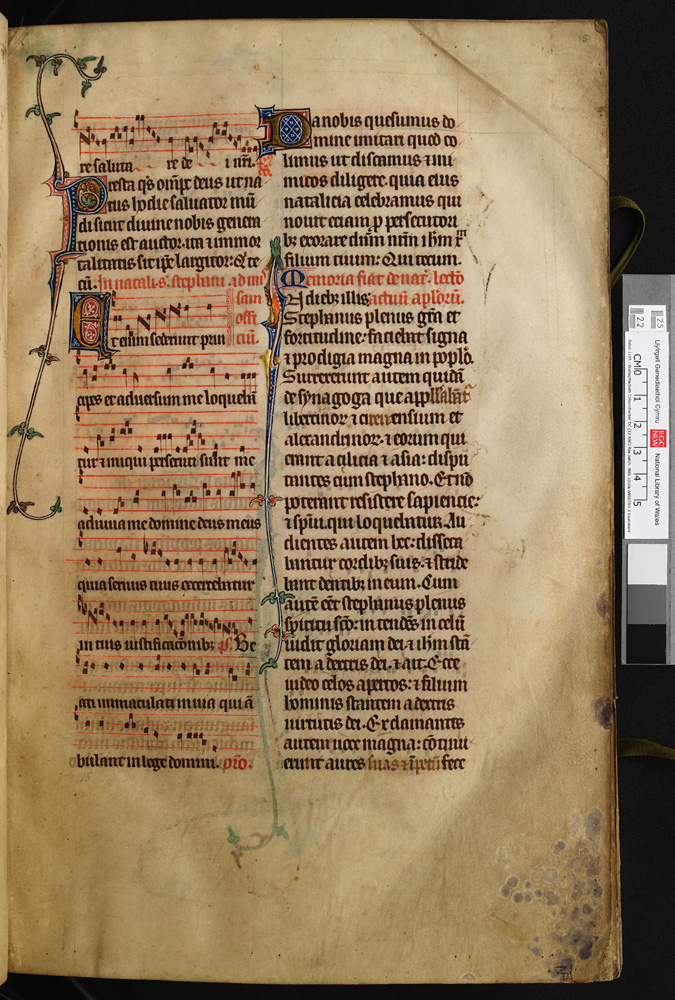 re saluta re de i nr̄i.
Presta qs om̄ps deus ut na
tus hodie saluator mū
di sicut diuine nobis gene
tionis est auctor. ita ⁊ immor
talitatis sit ip̄e largitor: Q̇ te
cū. In natali. s. stephani. ad
sam
offi
Et enim sederunt prin cīū.
cipes et aduersum me loqueban
tur et iniqui persecuti sunt me
adiuua me domine deus meus
quia seruus tuus exercebatur
in tuis iustificacionibꝫ p̄s. Be
ati immaculati in uia qui ā
bulant in lege domini. or̄o.
Da nobis quesumus do
mine imitari quod co
limus ut discamus ⁊ ini
micos diligere. quia eius
natalicia celebramus qui
nouit eciam p̱ persecutori
bꝫ exorare dn̄m nr̄m ih̄m xp̄m
filium tuum: Qui tecum.
Memoria fiat de nat̄. lectō
In diebꝫ illis: actuū aplorū.
Stephanus plenus gr̄a et
fortitudine: faciebat signa
⁊ prodigia magna in poplō.
Surrexerunt autem quidā
de synagoga que appellabat̄
libertinoꝝ ⁊ cirenensium et
alexandrinoꝝ ⁊ eorum qui
erant a cilicia ⁊ asia: dispu
tantes cum stephano. Et nō
poterant resistere sapiencie:
⁊ sp̄ui. qui loquebatur. Au
dientes autem hec: disseca
bantur cordibꝫ suis: ⁊ stride
bant dentibꝫ in eum. Cum
autē eēt stephanus plenus
spiritu sc̄o: intendēs in celū
uidit gloriam dei ⁊ ih̄m stā
tem a dextris dei. ⁊ ait. Ecce
uideo celos apertos: ⁊ filium
hominis stantem a dextris
uirtutis dei. Exclamantes
autem uoce magna: cōtinu
erunt aures suas ⁊ īpetū fece
15
Llyfrgell Genedlaethol Cymru
National Library of Wales
LLGC
NLW
CM 0 1 2 3 4 5